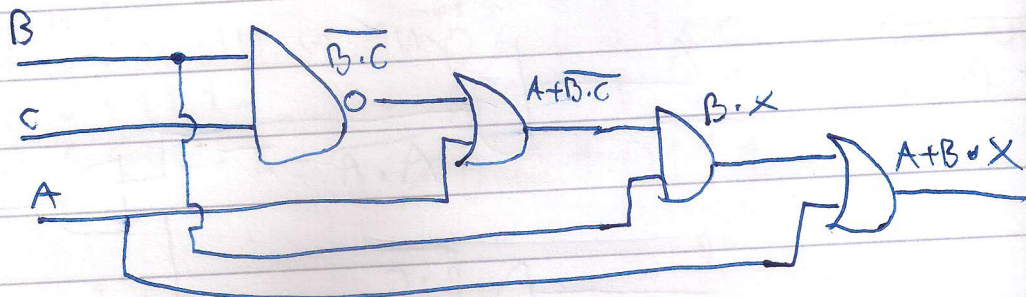 B
C
A
\overline{B·C}
A+\overline{B·C}
B·X
A+B·X